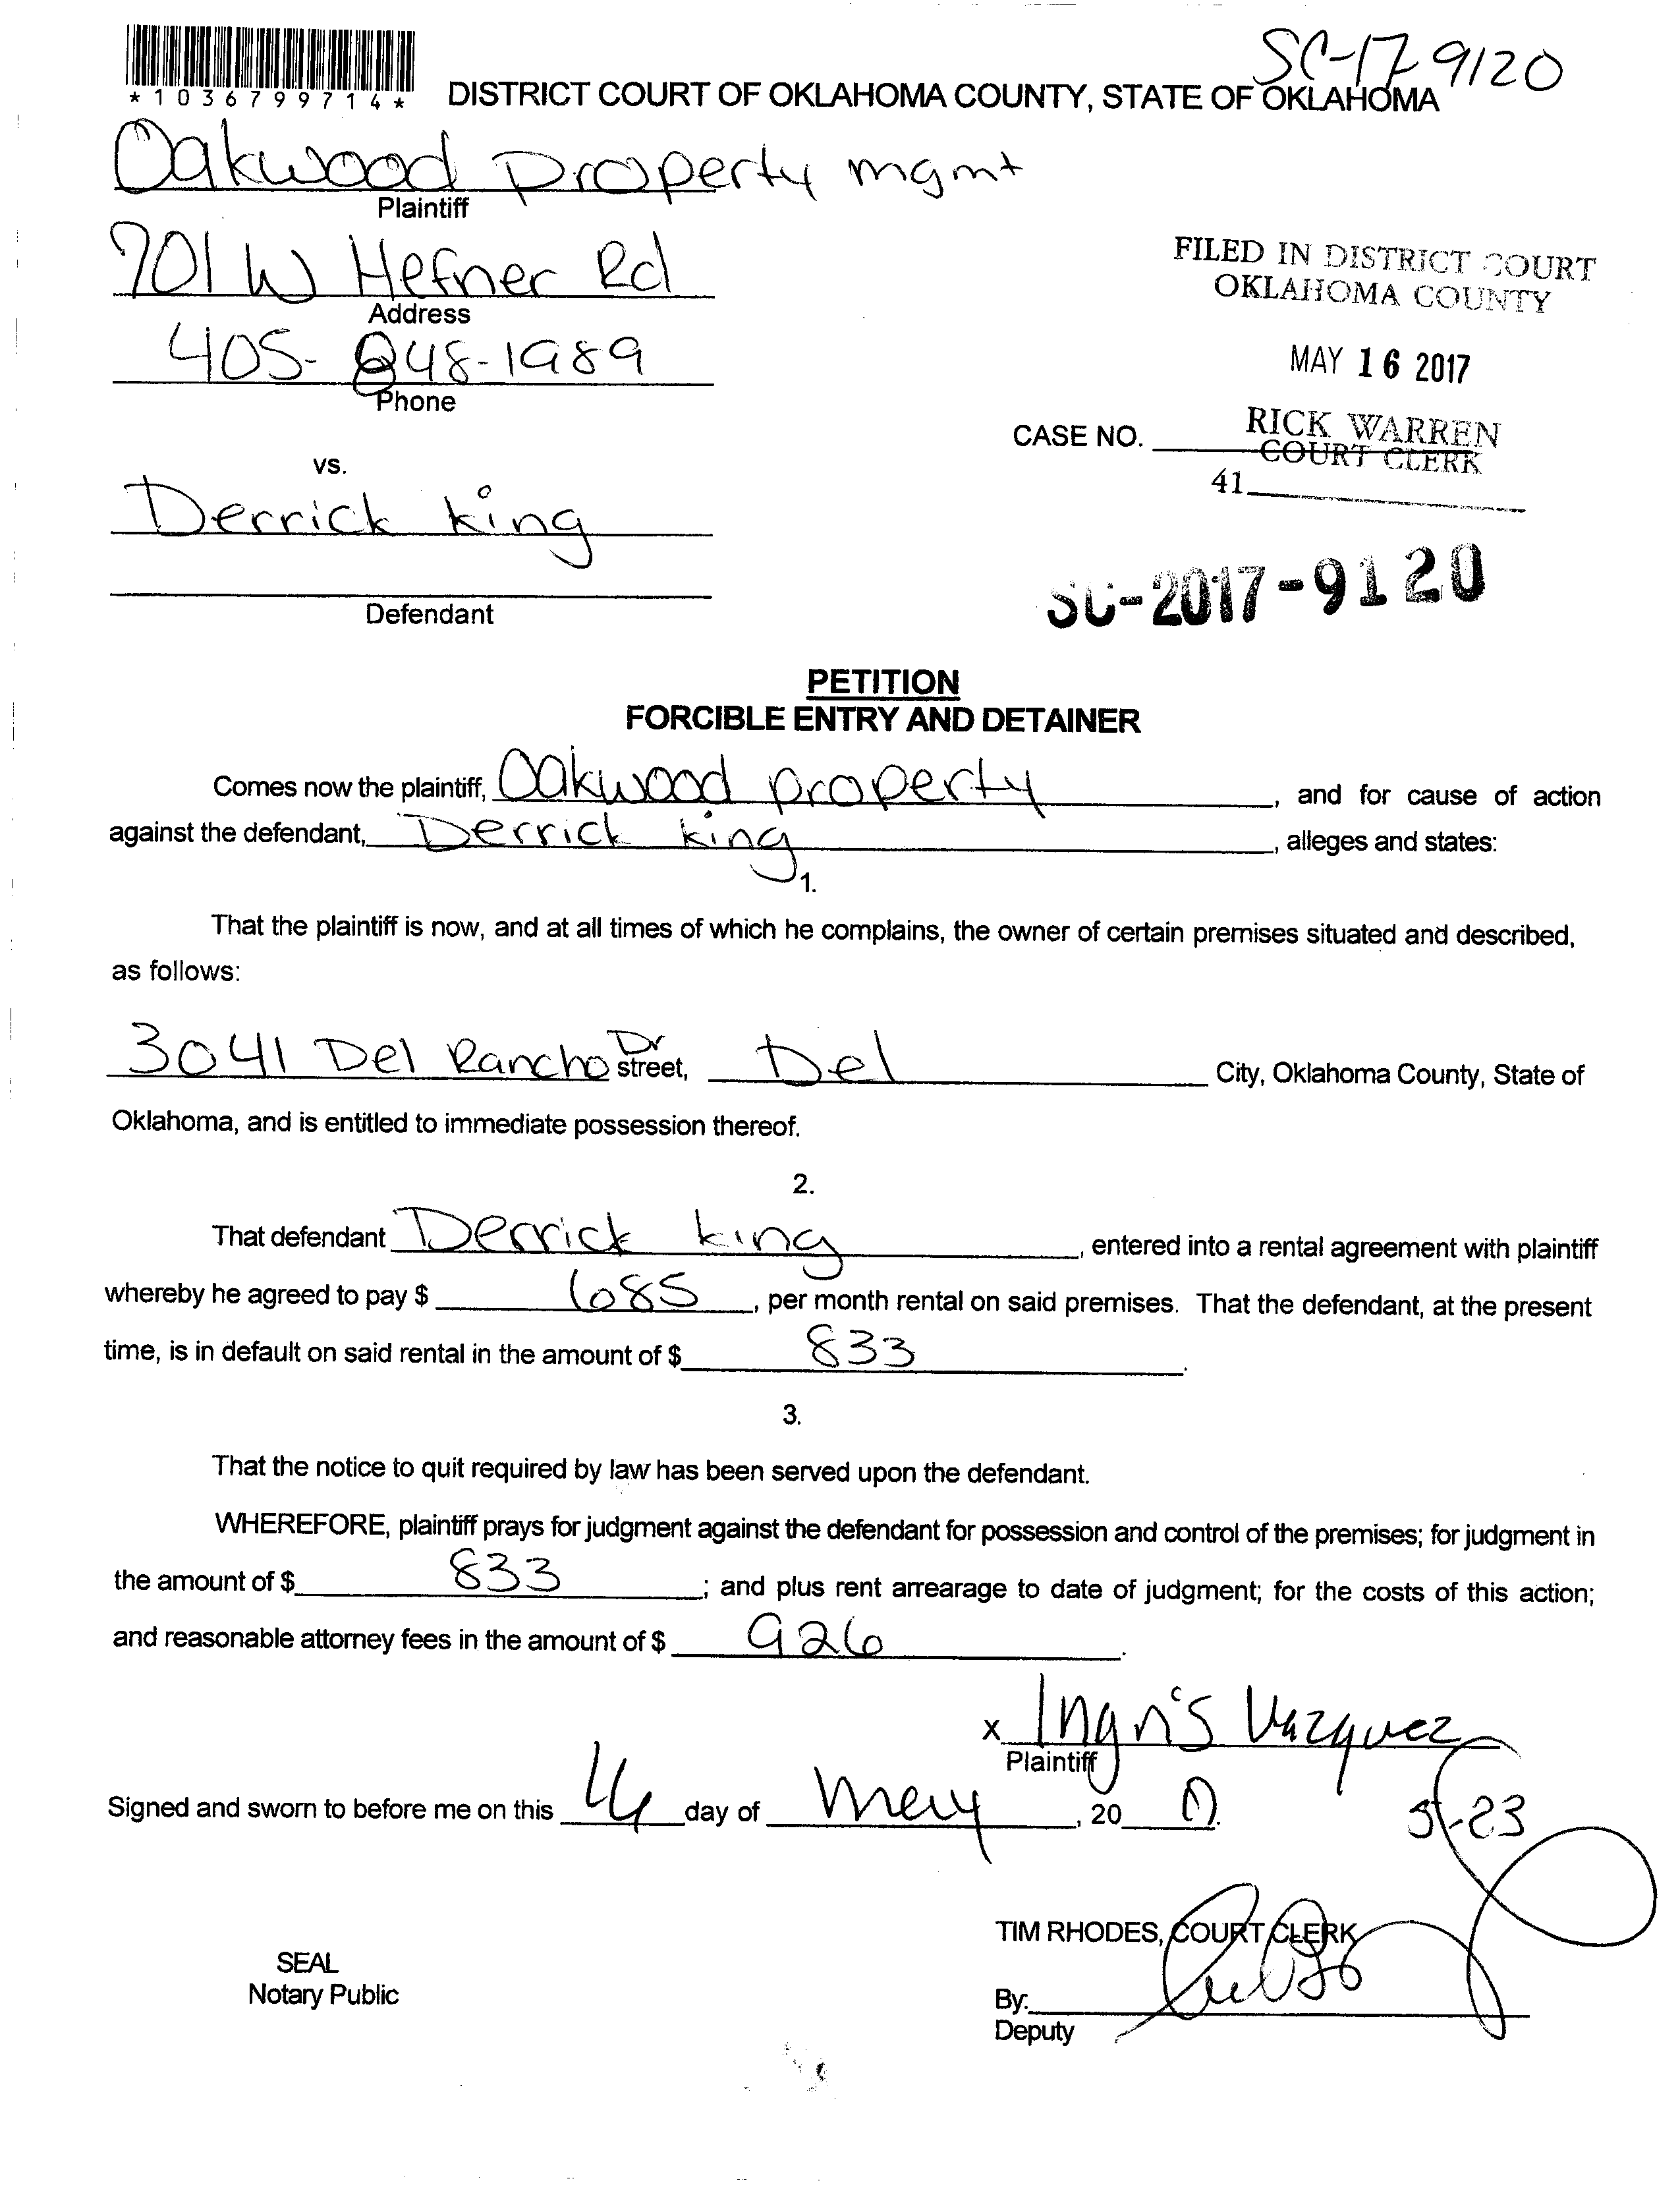 SC-17 9120
*1036799714*
DISTRICT COURT OF OKLAHOMA COUNTY, STATE OF OKLAHOMA
Oakwood Property mgmt
Plaintiff
901 W Hefner Rd
Address
405-848-1989
Phone
FILED IN DISTRICT COURT
OKLAHOMA COUNTY
MAY 16 2017
RICK WARREN
CASE NO.
COURT CLERK
41
vs.
Derrick King
Defendant
SC-2017-9120
PETITION
FORCIBLE ENTRY AND DETAINER
Comes now the plaintiff, Oakwood property, and for cause of action
against the defendant, Derrick King, alleges and states:
1.
That the plaintiff is now, and at all times of which he complains, the owner of certain premises situated and described,
as follows:
3041 Del Rancho Dr street, Del City, Oklahoma County, State of
Oklahoma, and is entitled to immediate possession thereof.
2.
That defendant Derrick King, entered into a rental agreement with plaintiff
whereby he agreed to pay $ 685, per month rental on said premises. That the defendant, at the present
time, is in default on said rental in the amount of $ 833.
3.
That the notice to quit required by law has been served upon the defendant.
WHEREFORE, plaintiff prays for judgment against the defendant for possession and control of the premises; for judgment in
the amount of $ 833; and plus rent arrearage to date of judgment; for the costs of this action;
and reasonable attorney fees in the amount of $ 926.
x Ingris Vazquez
Plaintiff
Signed and sworn to before me on this 16 day of May, 20
5-23
TIM RHODES, COURT CLERK
SEAL
Notary Public
By:
Deputy